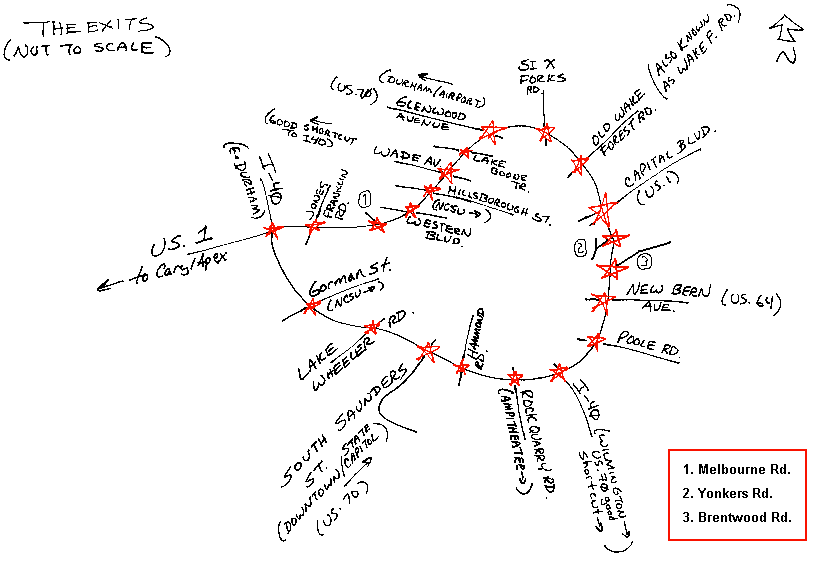 THE EXITS
(NOT TO SCALE)
N
SIX
FORKS
RD.
OLD WAKE (ALSO KNOWN
FOREST RD. AS WAKE F. RD.)
(DURHAM/AIRPORT)
(US.70)
GLENWOOD
AVENUE
(GOOD SHORTCUT
TO I40)
WADE AV.
LAKE
BOONE
TR.
CAPITAL BLVD.
(US.1)
I-40
(E DURHAM)
JONES
FRANKLIN
RD.
1
HILLSBOROUGH ST.
(NCSU →)
WESTERN
BLVD.
US. 1
to Cary/Apex
2
3
Gorman St.
(NCSU →)
NEW BERN (US.64)
AVE.
LAKE
WHEELER RD.
HAMMOND
RD.
POOLE RD.
SOUTH SAUNDERS
ST. STATE
(DOWNTOWN/CAPITOL)
(US.70)
ROCK QUARRY RD.
(AMPITHEATER →)
I-40 (WILMINGTON →
US.70 good
Shortcut →)
1. Melbourne Rd.
2. Yonkers Rd.
3. Brentwood Rd.